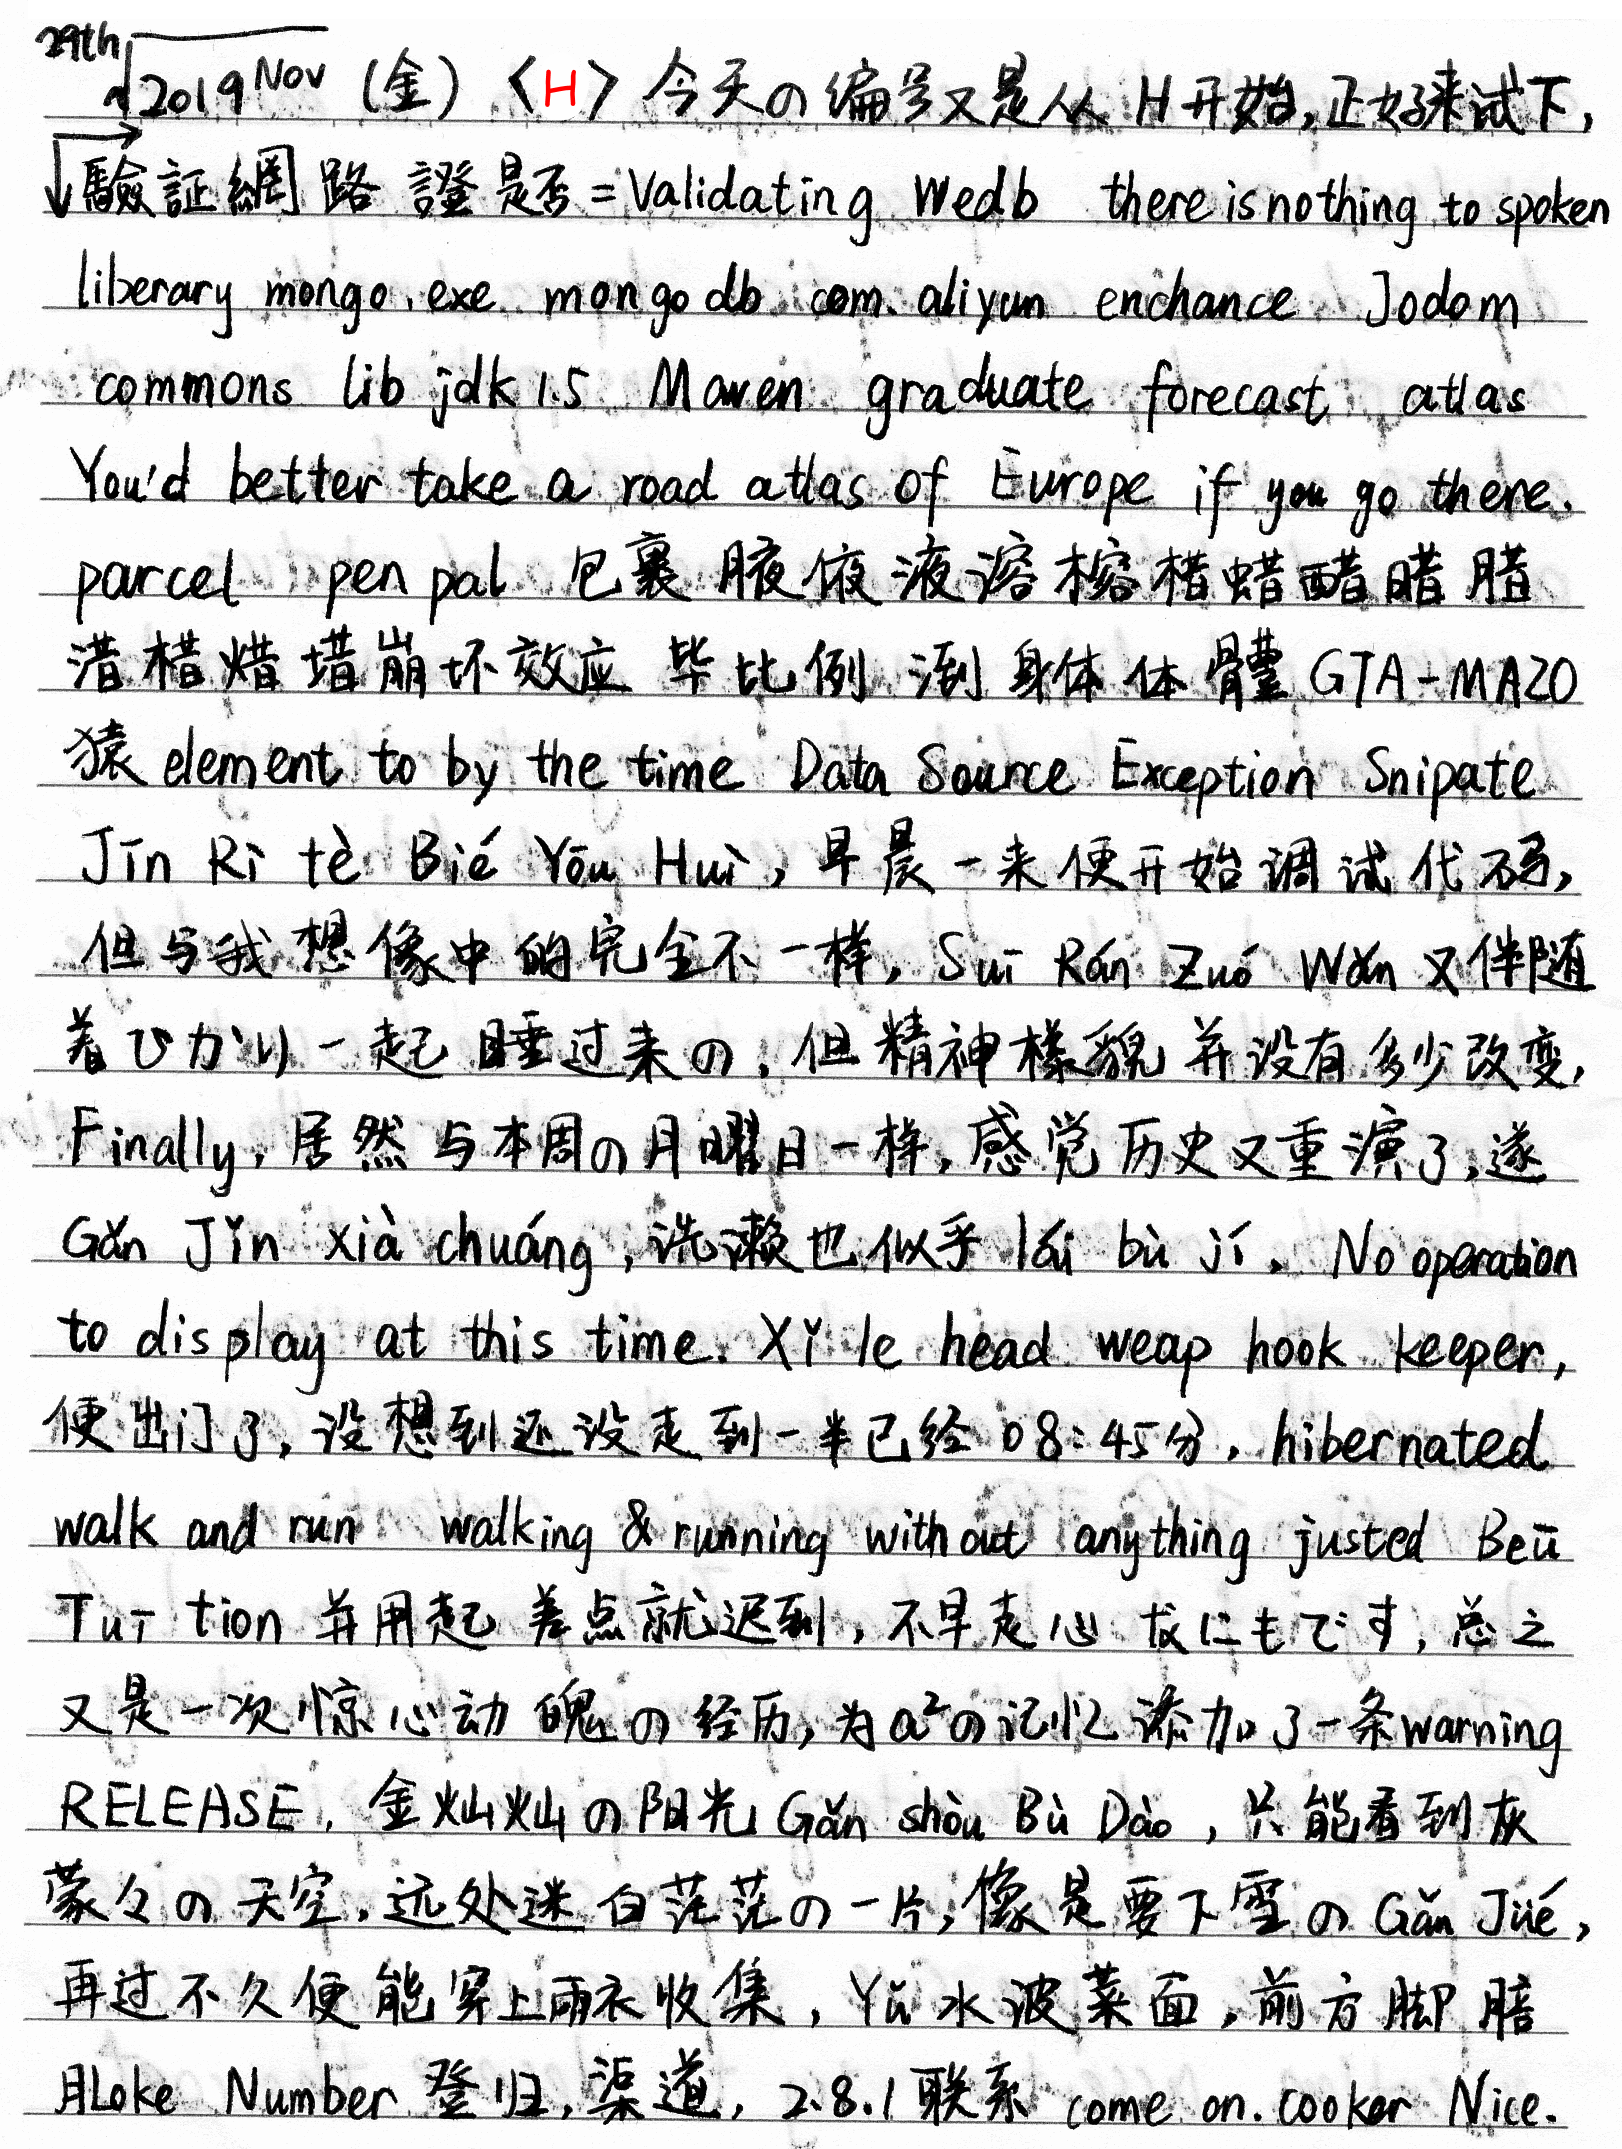 29th 2019 Nov (金) 〈H〉今天の编号又是从H开始,正好来试下,
驗証網路 證是否=Validating Wedb there is nothing to spoken
liberary mongo.exe mongodb com.aliyun enchance Jodom
commons lib jdk1.5 Maven graduate forecast atlas
You'd better take a road atlas of Europe if you go there.
parcel pen pal 包裹 腋 液溶榕楷蜡醋 腊
崩坏效应 毕比例 身体 体 GTA-MAZO
猿 element to by the time Data Source Exception Snipate
Jīn Rì tè Bié Yōu Huì, 早晨一来便开始调试代码,
但与我想像中的完全不一样, Suī Rán Zuó Wǎn 又伴随
着ひかり一起睡过来の,但精神樣貌并没有多少改变,
Finally, 居然与本周の月曜日一样,感觉历史又重演了,遂
Gǎn Jǐn xià chuáng, 洗濑也似乎 lái bù jí. No operation
to display at this time. Xǐ le head weap hook keeper,
便出门了,没想到还没走到一半已经08:45分. hibernated
walk and run walking & running without anything justed Beū
Tuī tion 并用起 差点就迟到,不早走心 にもです,总之
又是一次惊心动魄の经历,为a²の记忆添加了一条warning
RELEASE, 金灿灿の阳光 Gǎn shòu Bù Dào, 只能看到灰
蒙々の天空,远处迷白茫茫の一片,像是要下雪の Gǎn Jué,
再过不久便能穿上雨衣收集, Yǔ 水波菜面,前方脚
Loke Number 登归,渠道, 2.8.1联系 come on. cooker Nice.